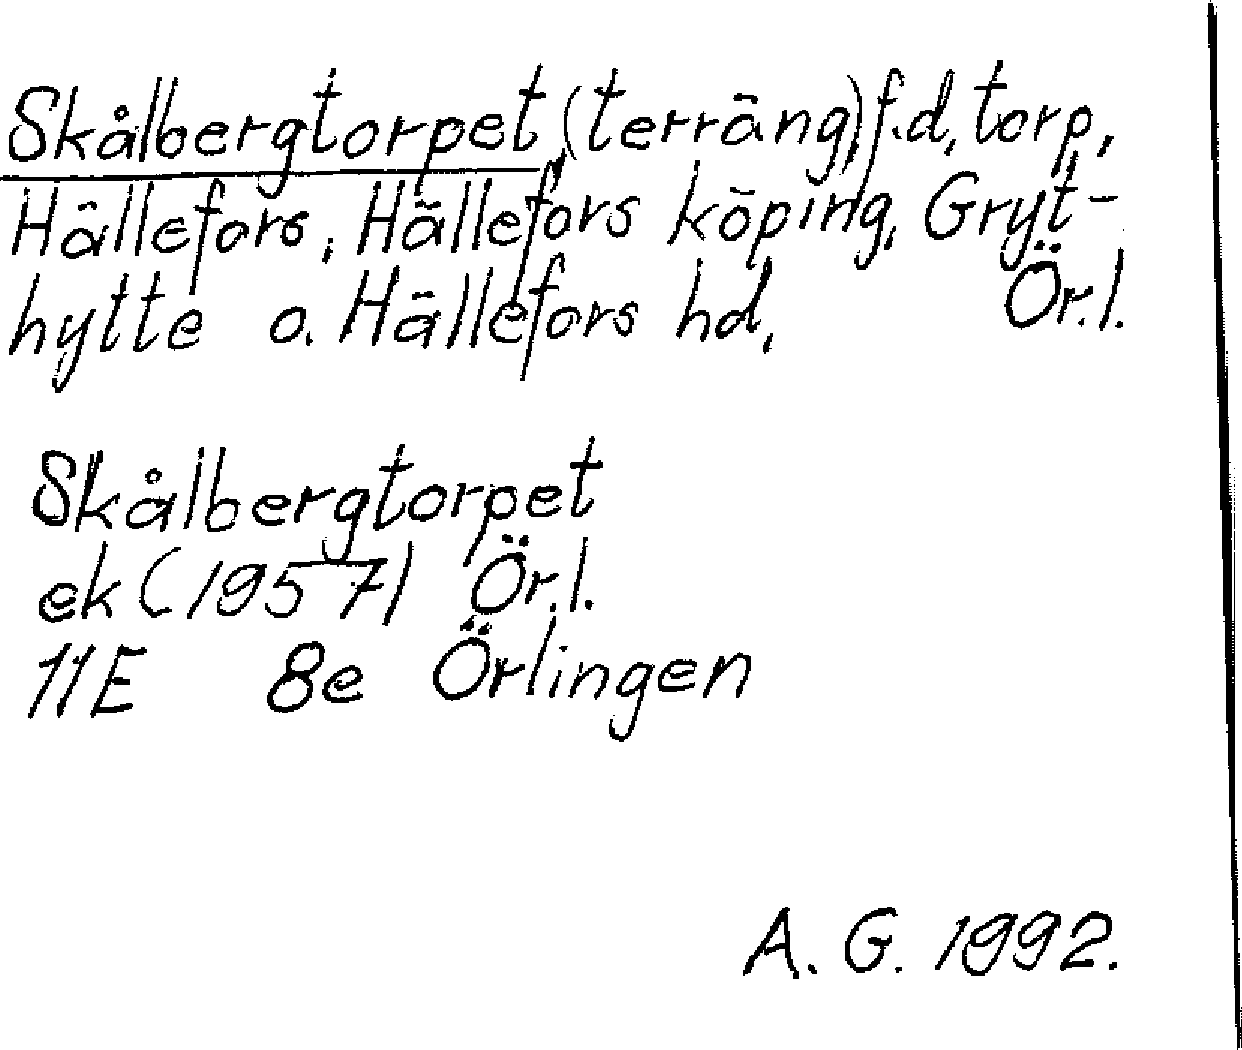 Skålbergtorpet, (terräng), f.d. torp,
Hällefors, Hällefors köping, Gryt-
hytte o. Hällefors hd, Ör.l.
Skålbergtorpet
ek (1957) Ör.l.
11E 8e Örlingen
A. G. 1992.